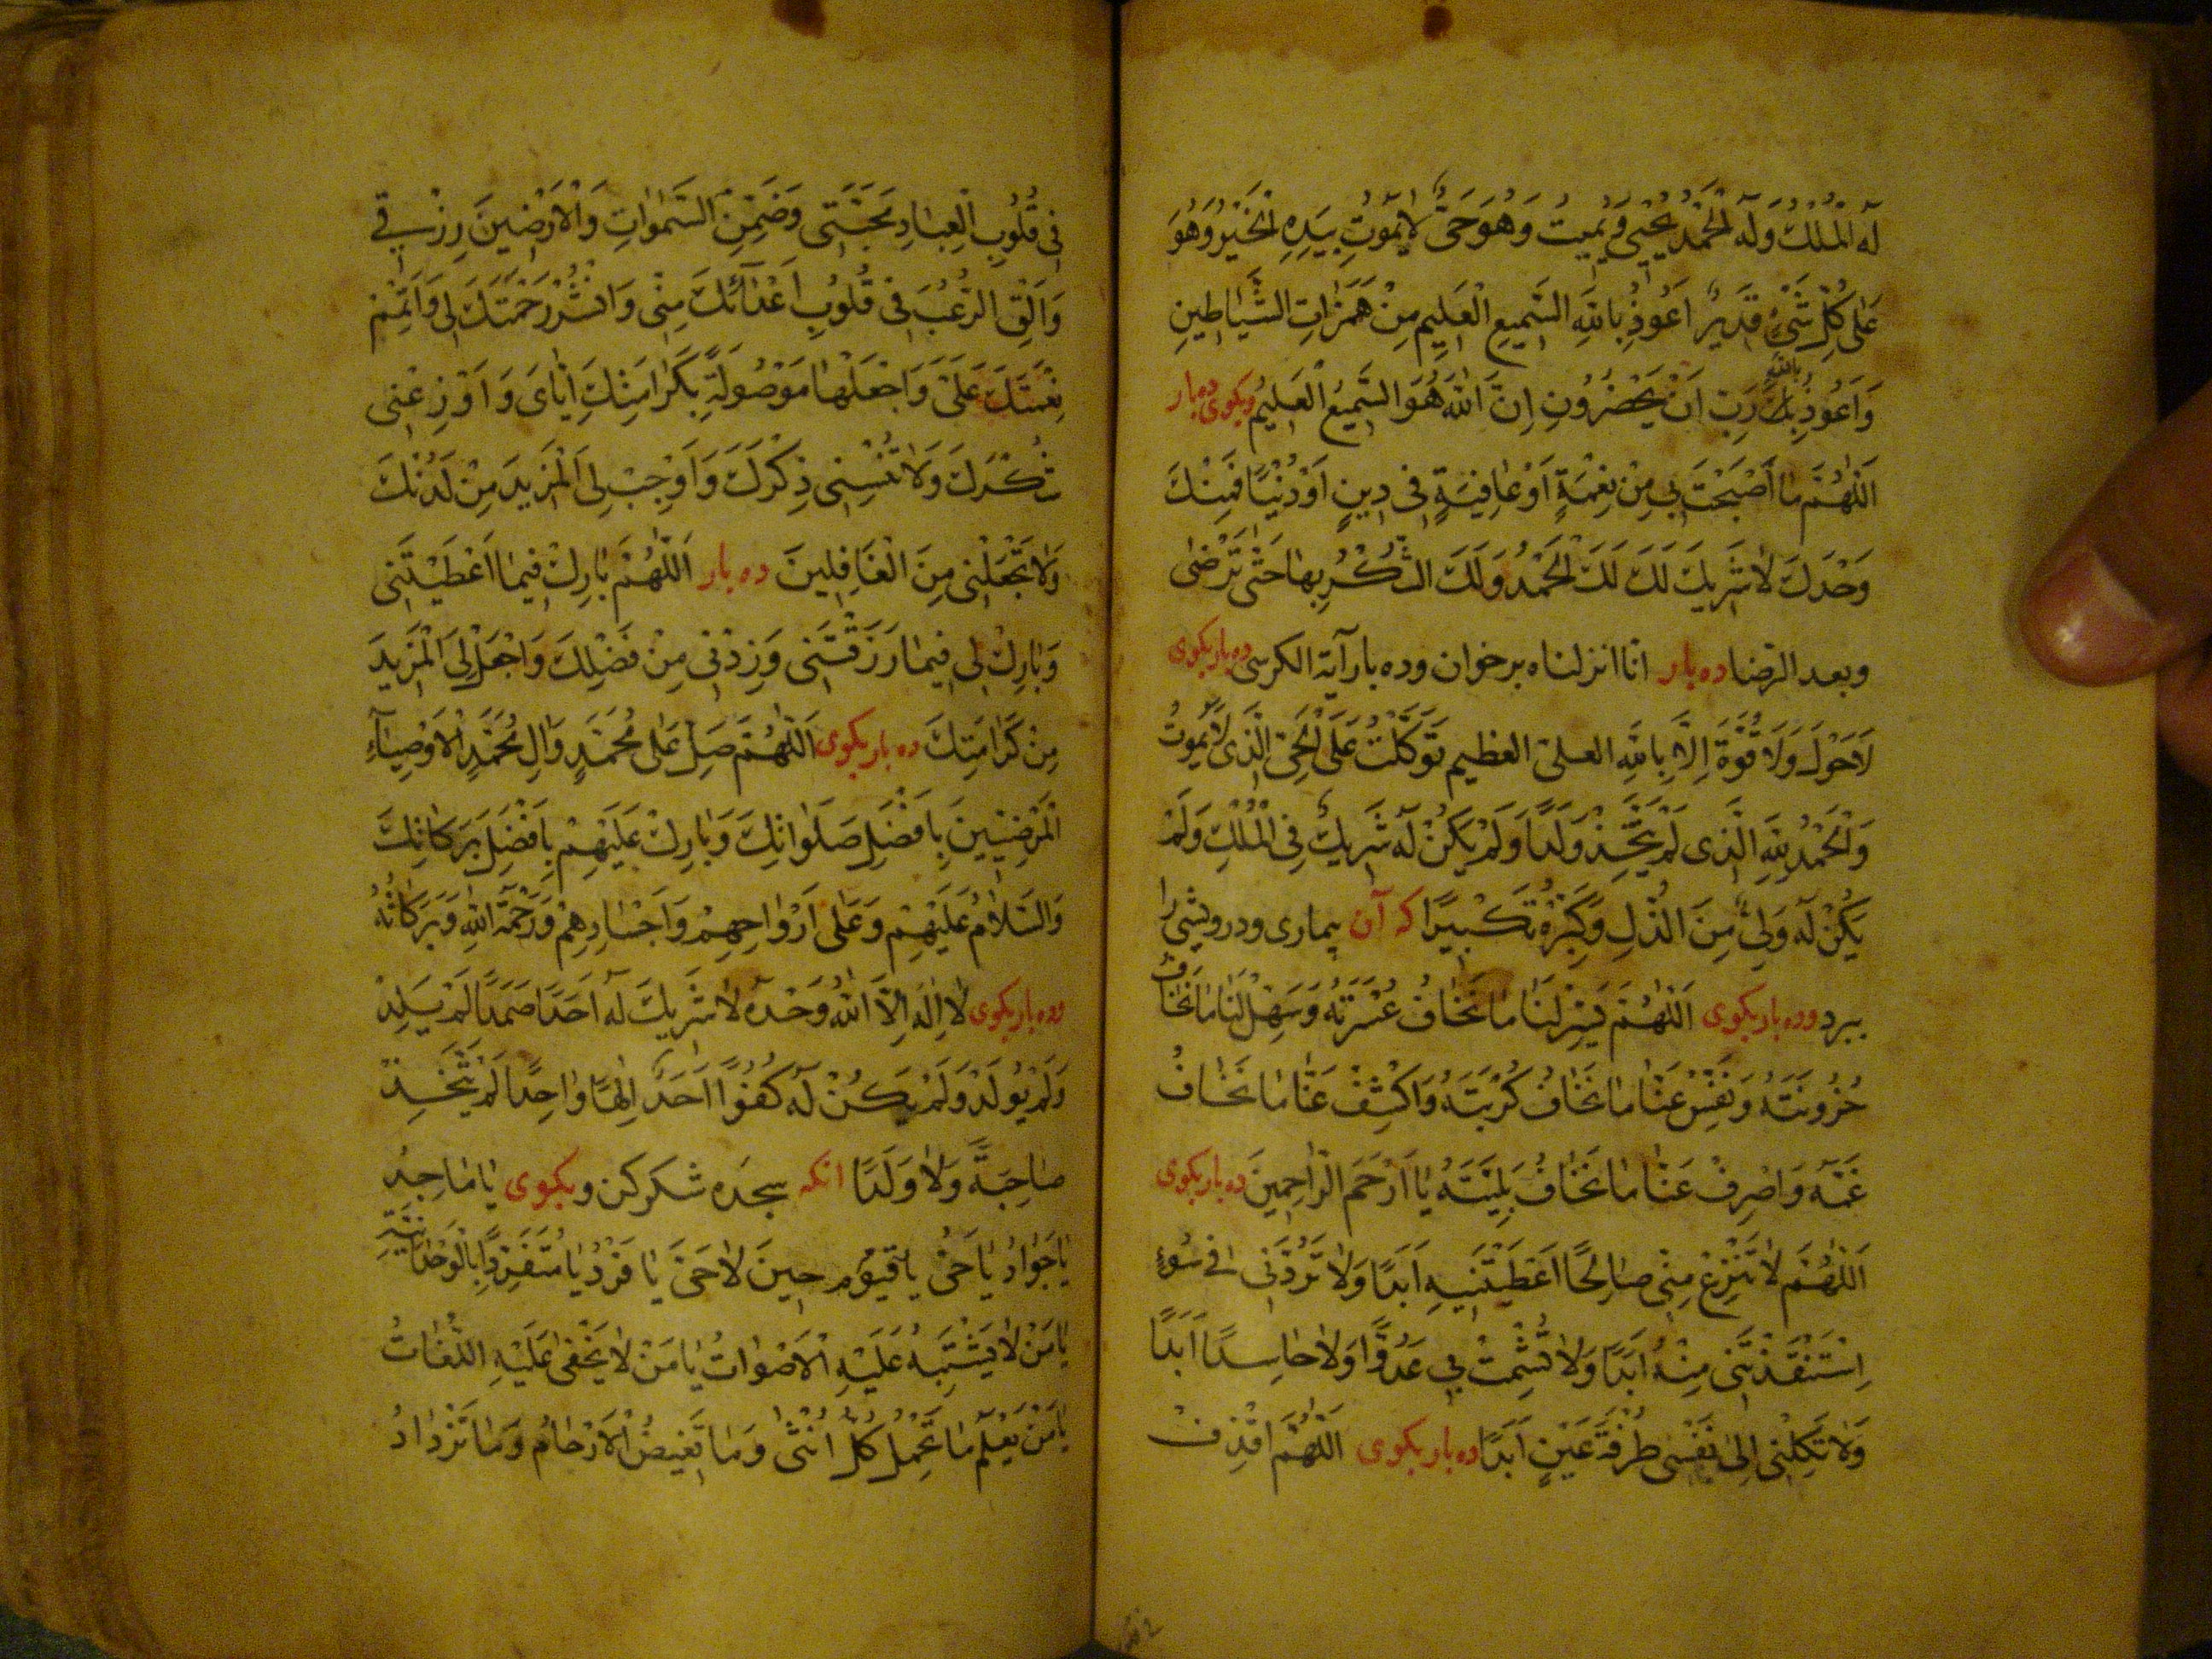 لَهُ الْمُلْكُ وَلَهُ الْحَمْدُ يُحْيِي وَيُمِيتُ وَهُوَ حَيٌّ لَا يَمُوتُ بِيَدِهِ الْخَيْرُ وَهُوَ
عَلَىٰ كُلِّ شَيْءٍ قَدِيرٌ اَعُوذُ بِاللهِ السَّمِيعِ الْعَلِيمِ مِنْ هَمَزَاتِ الشَّيَاطِينِ
بالله
وَاَعُوذُ بِكَ رَبِّ اَنْ يَحْضُرُونِ اِنَّ اللهَ هُوَ السَّمِيعُ الْعَلِيمُ وبكوى ده بار
اَللّٰهُمَّ مَا اَصْبَحْتَ بِي مِنْ نِعْمَةٍ اَوْ عَافِيَةٍ فِي دِينٍ اَوْ دُنْيَا فَمِنْكَ
وَحْدَكَ لَا شَرِيكَ لَكَ لَكَ الْحَمْدُ وَلَكَ الشُّكْرُ بِهَا حَتّٰى تَرْضٰى
وبعد الرضا ده بار انا انزلناه برخوان وده بار آية الكرسى ده بار بكوى
لَا حَوْلَ وَلَا قُوَّةَ اِلَّا بِاللهِ العلىّ العظيم تَوَكَّلْتُ عَلَى الْحَيِّ الَّذِى لَا يَمُوتُ
وَالْحَمْدُ لِلهِ الَّذِى لَمْ يَتَّخِذْ وَلَدًا وَلَمْ يَكُنْ لَهُ شَرِيكٌ فِي الْمُلْكِ وَلَمْ
يَكُنْ لَهُ وَلِيٌّ مِنَ الذُّلِّ وَكَبِّرْهُ تَكْبِيرًا كه آن بيمارى ودرويشى را
ببرد وده بار بكوى اَللّٰهُمَّ يَسِّرْ لَنَا مَا نَخَافُ عُسْرَتَهُ وَسَهِّلْ لَنَا مَا نَخَافُ
حُزُونَتَهُ وَنَفِّسْ عَنَّا مَا نَخَافُ كُرْبَتَهُ وَاكْشِفْ عَنَّا مَا نَخَافُ
غَمَّهُ وَاصْرِفْ عَنَّا مَا نَخَافُ بَلِيَّتَهُ يَا اَرْحَمَ الرَّاحِمِينَ ده بار بكوى
اَللّٰهُمَّ لَا تَنْزِعْ مِنِّى صَالِحًا اَعْطَيْتَنِيهِ اَبَدًا وَلَا تَرُدَّنِى فِي سُوءٍ
اِسْتَنْقَذْتَنِى مِنْهُ اَبَدًا وَلَا تُشْمِتْ بِي عَدُوًّا وَلَا حَاسِدًا اَبَدًا
وَلَا تَكِلْنِى اِلٰى نَفْسِى طَرْفَةَ عَيْنٍ اَبَدًا ده بار بكوى اَللّٰهُمَّ اقْذِفْ
فِى قُلُوبِ الْعِبَادِ مَحَبَّتِى وَضَمِّنِ السَّمٰوَاتِ وَالْاَرَضِينَ رِزْقِى
وَاَلْقِ الرُّعْبَ فِى قُلُوبِ اَعْدَائِكَ مِنِّى وَانْشُرْ رَحْمَتَكَ لِى وَاَتْمِمْ
نِعْمَتَكَ عَلَىَّ وَاجْعَلْهَا مَوْصُولَةً بِكَرَامَتِكَ اِيَّاىَ وَاَوْزِعْنِى
شُكْرَكَ وَلَا تُنْسِنِى ذِكْرَكَ وَاَوْجِبْ لِى الْمَزِيدَ مِنْ لَدُنْكَ
وَلَا تَجْعَلْنِى مِنَ الْغَافِلِينَ ده بار اَللّٰهُمَّ بَارِكْ فِيمَا اَعْطَيْتَنِى
وَبَارِكْ لِى فِيمَا رَزَقْتَنِى وَزِدْنِى مِنْ فَضْلِكَ وَاجْعَلْ لِىَ الْمَزِيدَ
مِنْ كَرَامَتِكَ ده بار بكوى اَللّٰهُمَّ صَلِّ عَلٰى مُحَمَّدٍ وَالِ مُحَمَّدٍ الْاَوْصِيَاءِ
الْمَرْضِيِّينَ بِاَفْضَلِ صَلَوَاتِكَ وَبَارِكْ عَلَيْهِمْ بِاَفْضَلِ بَرَكَاتِكَ
وَالسَّلَامُ عَلَيْهِمْ وَعَلٰى اَرْوَاحِهِمْ وَاَجْسَادِهِمْ وَرَحْمَةُ اللهِ وَبَرَكَاتُهُ
وده بار بكوى لَا اِلٰهَ اِلَّا اللهُ وَحْدَهُ لَا شَرِيكَ لَهُ اَحَدًا صَمَدًا لَمْ يَلِدْ
وَلَمْ يُولَدْ وَلَمْ يَكُنْ لَهُ كُفُوًا اَحَدٌ اِلٰهًا وَاحِدًا لَمْ يَتَّخِذْ
صَاحِبَةً وَلَا وَلَدًا انكه سجده شكر كن وبكوى يَا مَاجِدُ
يَا جَوَادُ يَا حَىُّ يا قيّوم حِينَ لَا حَىَّ يَا فَرْدُ يَا مُتَفَرِّدًا بِالْوَحْدَانِيَّةِ
يَا مَنْ لَا يَشْتَبِهُ عَلَيْهِ الْاَصْوَاتُ يَا مَنْ لَا يَخْفٰى عَلَيْهِ اللُّغَاتُ
يَا مَنْ يَعْلَمُ مَا تَحْمِلُ كُلُّ اُنْثٰى وَمَا تَغِيضُ الْاَرْحَامُ وَمَا تَزْدَادُ